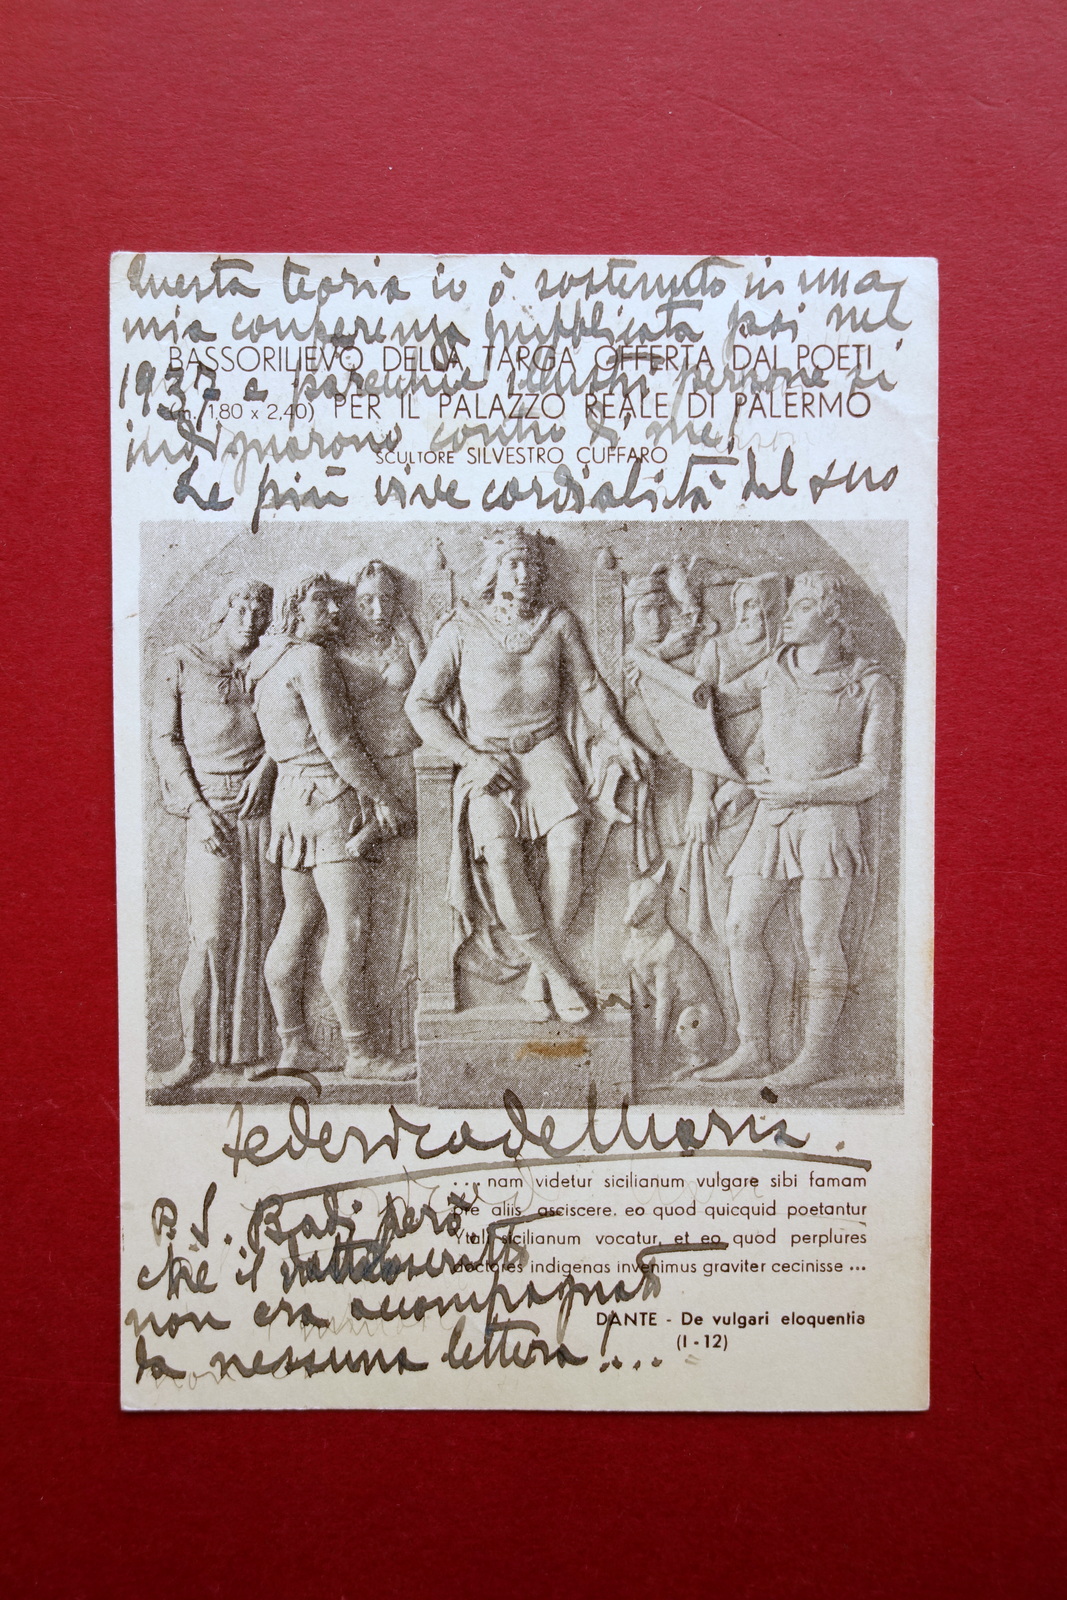 Questa teoria io ò sostenuto in una
mia conferenza pubblicata poi nel
BASSORILIEVO DELLA TARGA OFFERTA DAI POETI
1937 e parecchie persone si
(m. 1,80 x 2,40) PER IL PALAZZO REALE DI PALERMO
indignarono contro di me!
SCULTORE SILVESTRO CUFFARO
Le più vive cordialità dal suo
Federico de Maria.
... nam videtur sicilianum vulgare sibi famam
pre aliis asciscere. eo quod quicquid poetantur
Ytali sicilianum vocatur, et eo quod perplures
doctores indigenas invenimus graviter cecinisse ...
DANTE - De vulgari eloquentia
(I - 12)
P.S. Badi però
che il dattiloscritto
non era accompagnato
da nessuna lettera ....